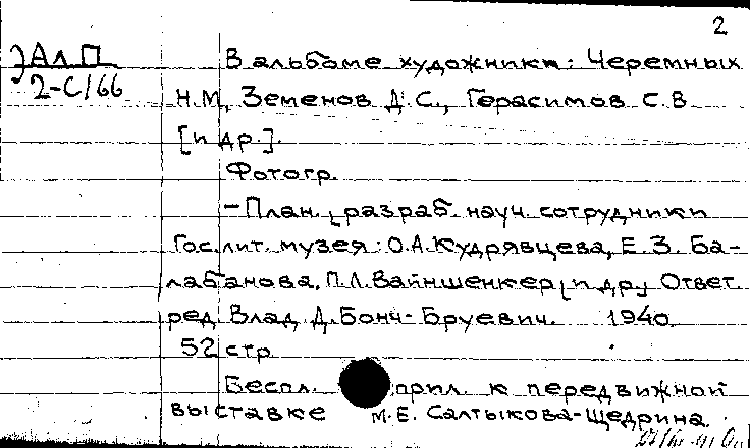 2
ЭАлП
2-С/66
В альбоме художники: Черемных
Н.М., Земенов Д. С., Герасимов С. В
[и др.].
Фотогр.
- План. разраб. науч. сотрудники
Гос. лит. музея: О.А. Кудрявцева, Е. З. Ба-
лабанова, П.Л. Вайншенкер [и др] Ответ.
ред. Влад. Д. Бонч-Бруевич. 1940.
52 стр
Беспл. прил. к передвижной
выставке М.Е. Салтыкова-Щедрина.